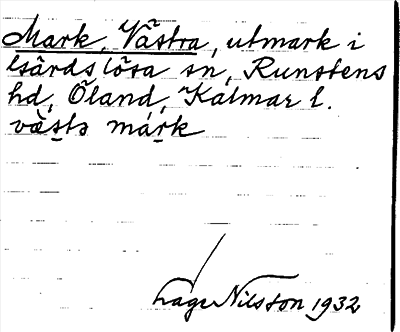 Mark, Västra, utmark i
Gårdslösa sn, Runstens
hd, Öland, Kalmar l.
väs̱tɘ már̲k
Lage Nilsson 1932